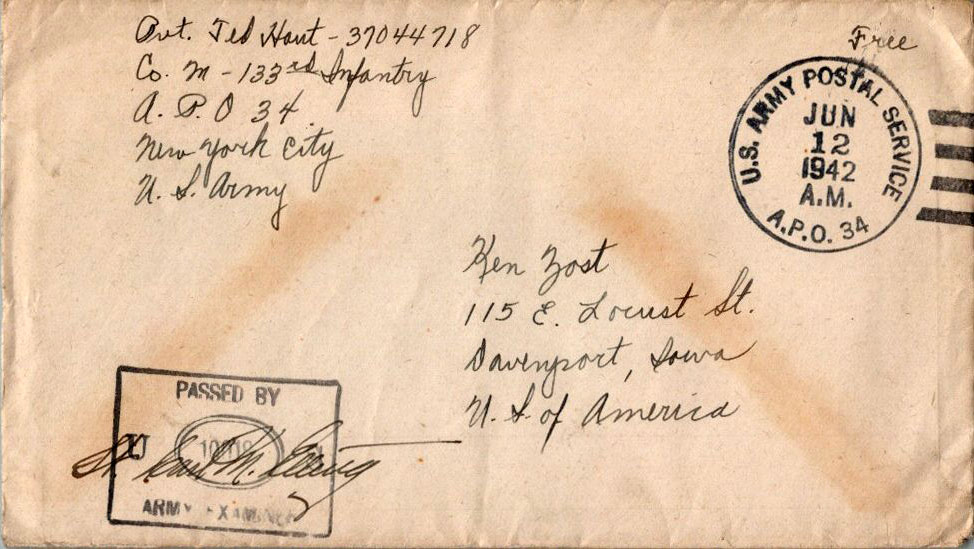 Pvt. Ted Hout - 37044718
Co. M - 133rd Infantry
A. P. O 34
New York City
U. S. Army
Free
U.S. ARMY POSTAL SERVICE
JUN
12
1942
A.M.
A.P.O. 34
Ken Zost
115 E. Locust St.
Davenport, Iowa
U. S. of America
PASSED BY
ARMY EXAMINER